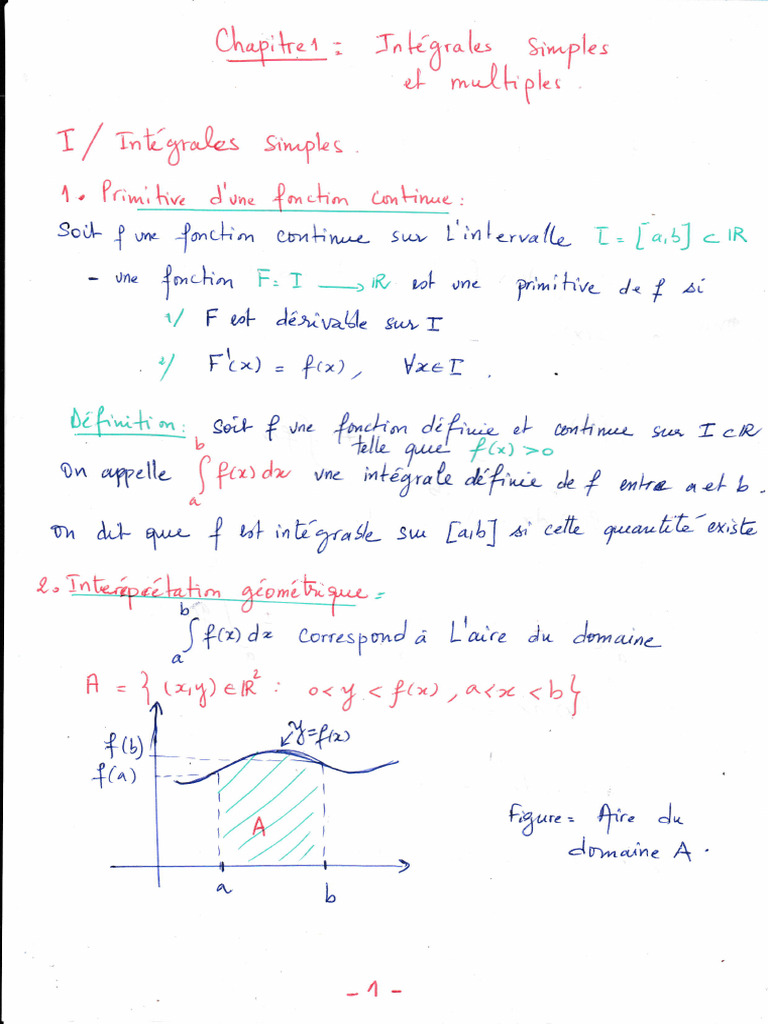 Chapitre 1 : Intégrales simples
et multiples.
I / Intégrales simples.
1. Primitive d'une fonction continue :
Soit f une fonction continue sur L'intervalle I = [a,b] ⊂ ℝ
- une fonction F: I ⟶ ℝ est une primitive de f si
1/ F est dérivable sur I
2/ F'(x) = f(x), ∀x∈I .
Définition: soit f une fonction définie et continue sur I⊂ℝ
telle que f(x)>0
On appelle ∫_a^b f(x)dx une intégrale définie de f entre a et b.
on dit que f est intégrable sur [a,b] si cette quantité existe
2. Interéprétation géométrique :
∫_a^b f(x)dx correspond à L'aire du domaine
A = { (x,y)∈ℝ² : 0<y<f(x), a<x<b}
y=f(x)
f(b)
f(a)
A
a
b
Figure : Aire du
domaine A .
- 1 -